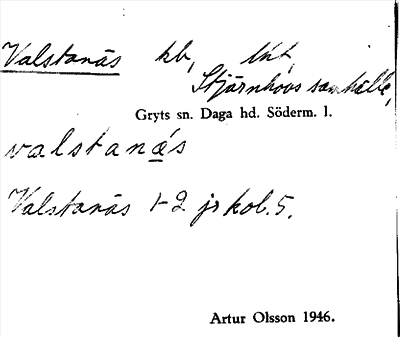 Valstanäs kb, tnt,
Stjärnhovs samhälle,
Gryts sn. Daga hd. Söderm. l.
valstanäs
Valstanäs 1-2 jr kol. 5.
Artur Olsson 1946.